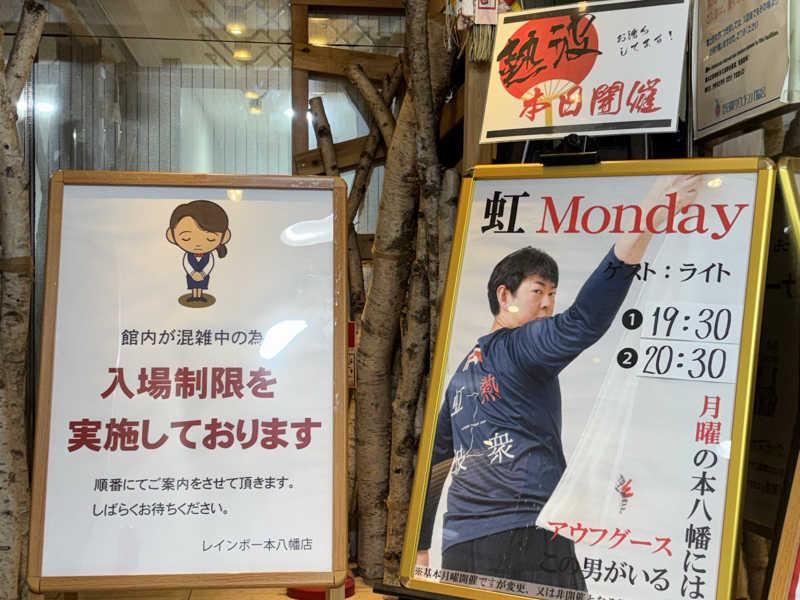 館内が混雑中の為
入場制限を
実施しております
順番にてご案内をさせて頂きます。
しばらくお待ちください。
レインボー本八幡店
熱波
お待ち
してます!
本日開催
虹 Monday
ゲスト:ライト
❶ 19:30
❷ 20:30
月曜の本八幡には
アウフグース
この男がいる
熱
虹
波
衆
※基本月曜開催ですが変更、又は非開催となる